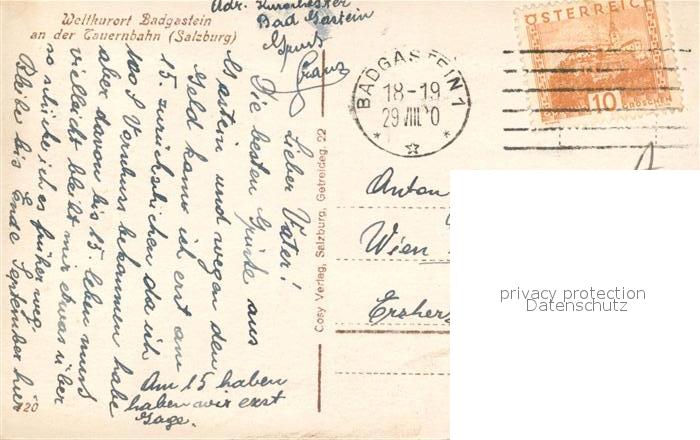 Weltkurort Badgastein
an der Tauernbahn (Salzburg)
Adr. Kurorchester
Bad Gastein
Gruss
Franz
Lieber Vater!
Die besten Grüße aus
Gastein und wegen den
Geld kann ich erst am
15. zurückschicken da ich
100 S Vorschuss bekommen habe
aber davon bis 15. leben muss
vielleicht bleibt mir etwas über
so schicke ich es früher weg.
Bleibe bis Ende September hier
Am 15 haben
haben wir erst
Gage.
420
Cosy Verlag, Salzburg, Getreideg. 22
BADGASTEIN 1
18-19
29 VIII 30
ÖSTERREICH
10 GROSCHEN
Anton
Wien
Erzher
privacy protection
Datenschutz